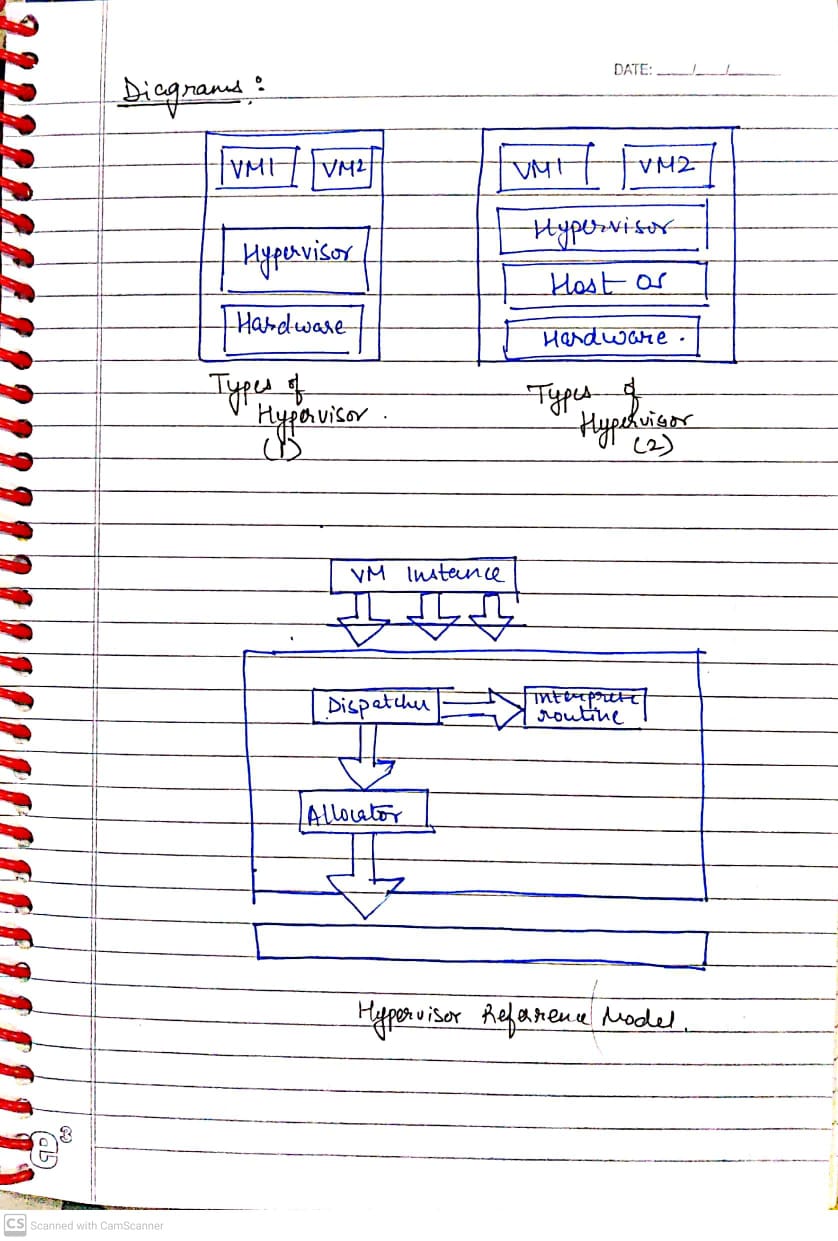 DATE: __/__/__
Diagrams:
VM1 VM2
Hypervisor
Hardware
Types of
Hypervisor.
(1)
VM1 VM2
Hypervisor
Host OS
Hardware.
Types of
Hypervisor
(2)
VM Instance
Dispatcher
Interprete
routine
Allocator
Hypervisor Reference Model.
e3
CS Scanned with CamScanner